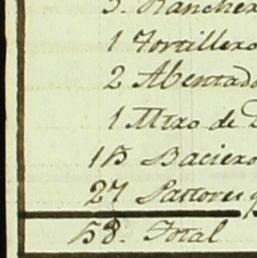 3. Ranchero
1 Tortillero
2 Abentado
1 Mozo de
18 Baciero
27 Pastores q
58. Total